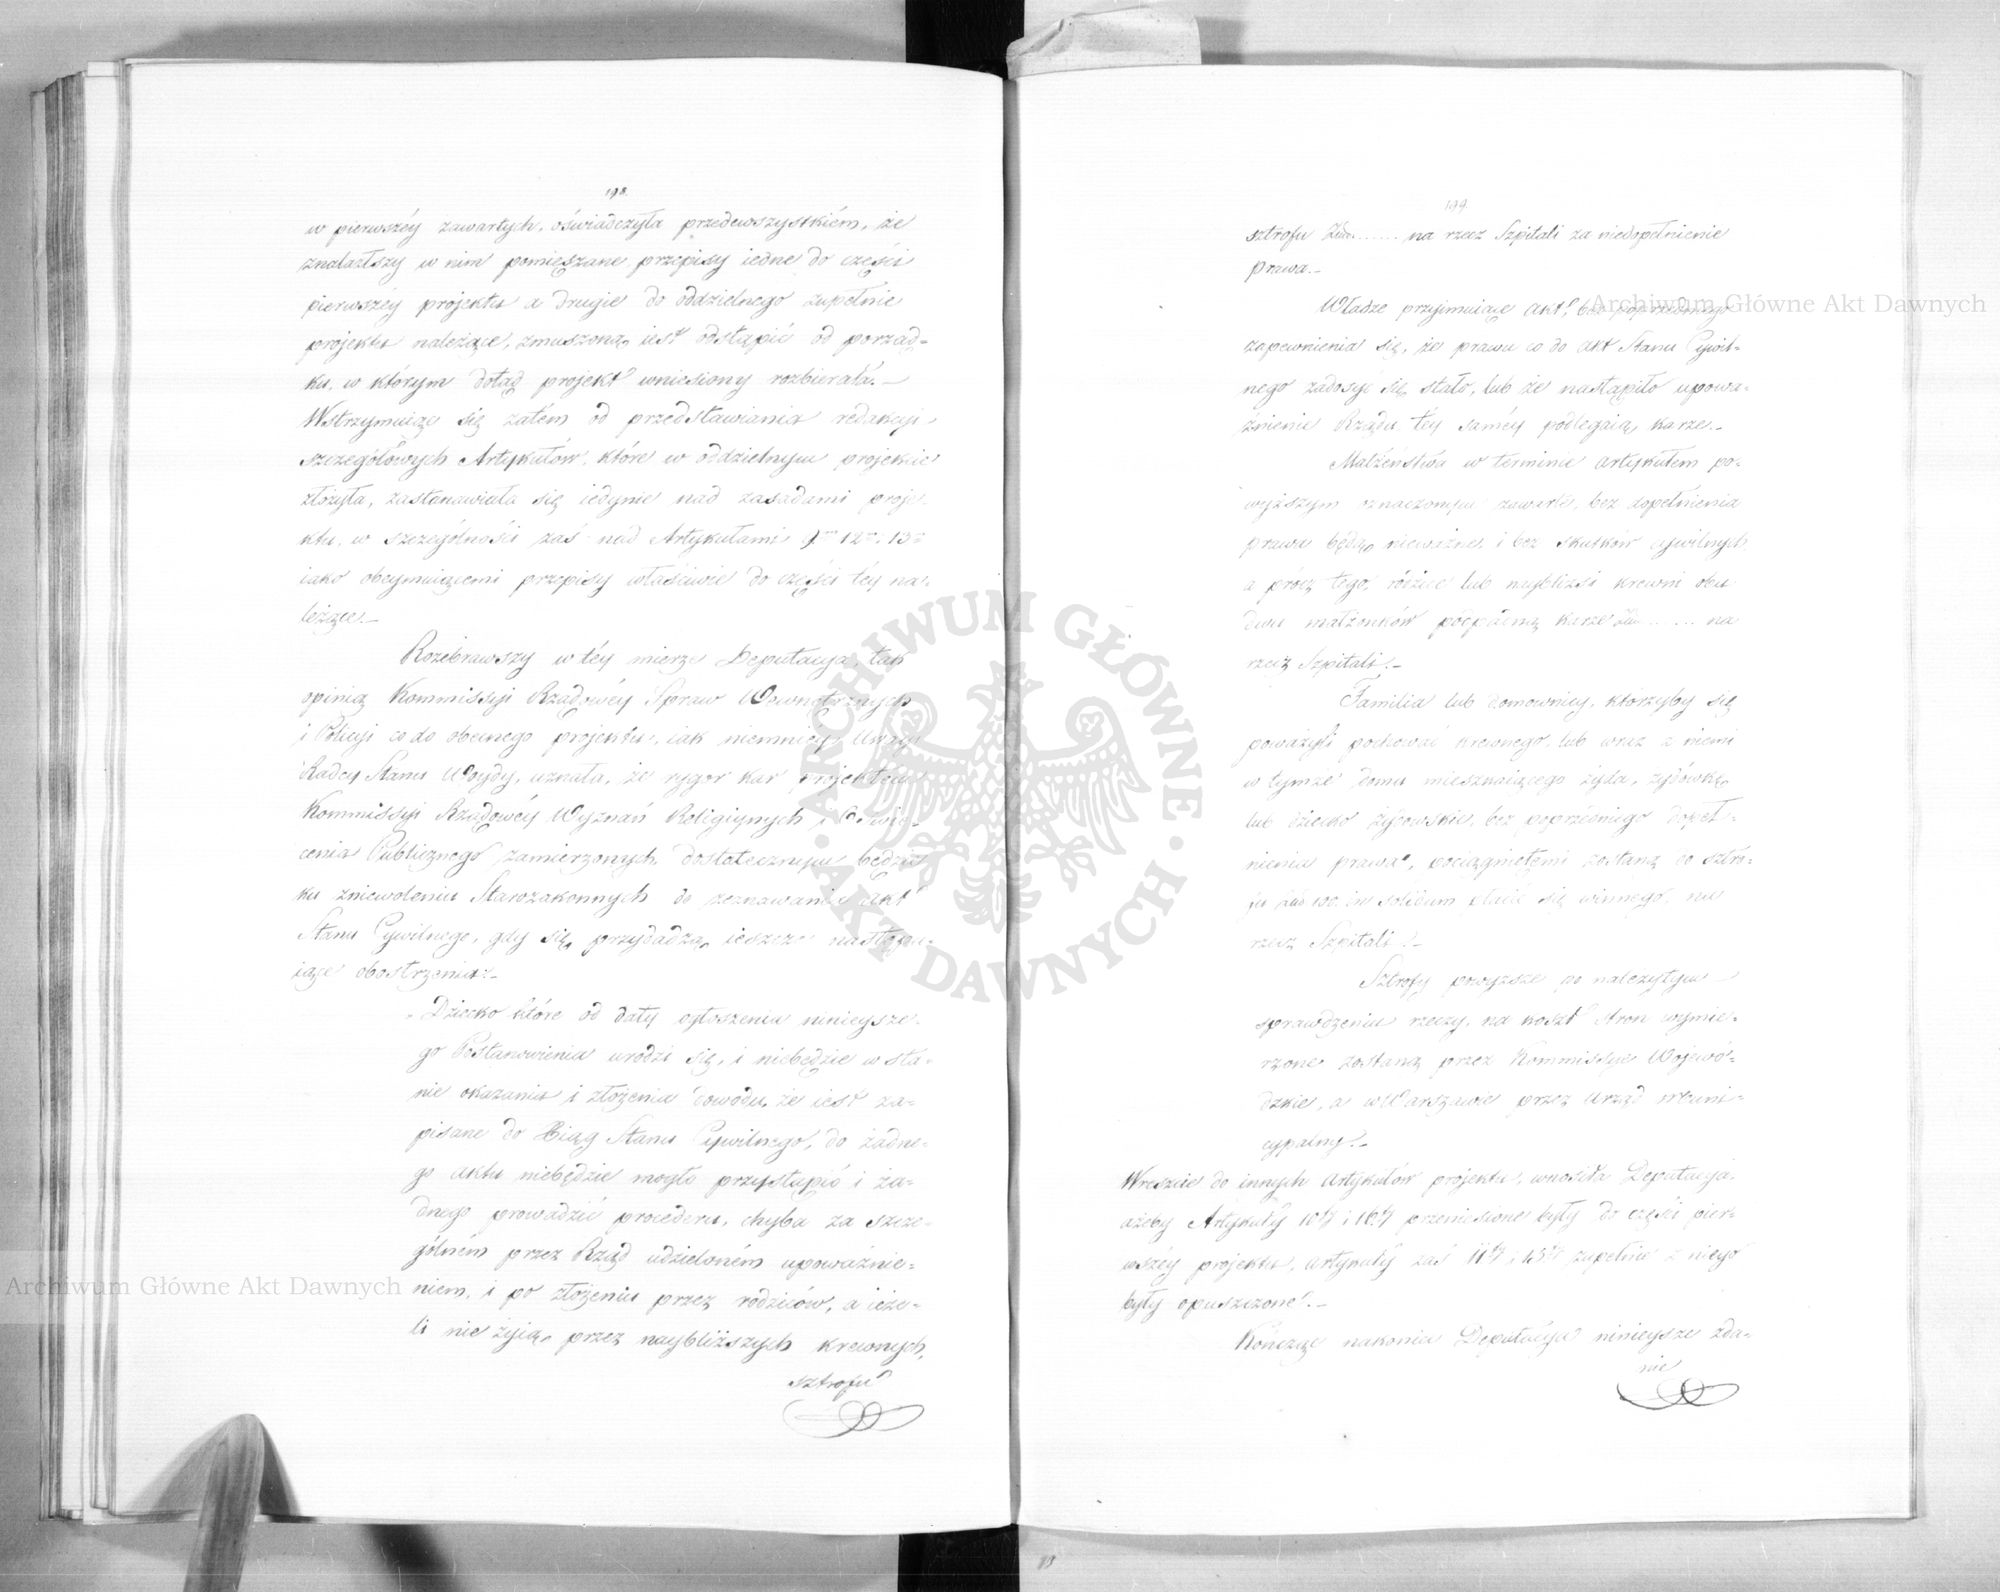 198.
w pierwszéy zawartych, oświadczyła przedewszystkiém, że
znalazłszy w nim pomięszane przepisy iedne do części
pierwszéy projektu a drugie do oddzielnego zupełnie
projektu należące, zmuszoną iest odstąpić od porząd=
ku, w którym dotąd projekt wniesiony rozbierała.—
Wstrzymuiąc się zatém od przedstawiania redakcyi
szczegółowych Artykułów, które w oddzielnym projekcie
złożyła, zastanawiała się iedynie nad zasadami proje=
ktu, w szczególności zaś nad Artykułami 9m 12m 13m
iako obeymuiącemi przepisy właściwie do części téy na=
leżące.—
Rozebrawszy w téy mierze Deputacya, tak
opinią Kommissyi Rządowéy Spraw Wewnętrznych
i Policyi co do obecnego projektu, iak niemniéy Uwagi
Radcy Stanu Woydy, uznała, że rygor kar projektem
Kommissyi Rządowéy Wyznań Religiynych i Oświe=
cenia Publicznego zamierzonych dostatecznym będzie
ku zniewoleniu Starozakonnych do zeznawania akt
Stanu Cywilnego, gdy się przydadzą ieszcze nastepu=
iące obostrzenia:—
„Dziecko które od daty ogłoszenia ninieysze=
go Postanowienia urodzi się, i niebędzie w sta=
nie okazania i złożenia dowodu, że iest za=
pisane do Xiąg Stanu Cywilnego, do żadne=
go aktu niebędzie mogło przystąpić i ża=
dnego prowadzić procederu, chyba za szcze=
gólném przez Rząd udzieloném upoważnie=
niem, i po złożeniu przez rodziców, a ieże=
li nie żyią, przez naybliższych krewnych,
sztrofu
199.
sztrofu Złu. ...... na rzecz Szpitali za niedopełnienie
prawa.—
Władze przyjmuiące akt, bez poprzedniego
zapewnienia się, że prawu co do akt Stanu Cywil=
nego zadosyć się stało, lub że nastąpiło upowa=
żnienie Rządu, téy saméy podlegaią karze.—
Małżeństwa w terminie artykułem po=
wyższym oznaczonym zawarte, bez dopełnienia
prawa będą nieważne, i bez skutków cywilnych,
a prócz tego, rodzice lub naybliżsi krewni obu
dwu małżonków podpadną karze Złu. .... na
rzecz Szpitali.—
Familia lub domownicy, którzyby się
poważyli pochować krewnego, lub wraz z niemi
w tymże domu mieszkaiącego żyda, żydówkę,
lub dziecko żydowskie, bez poprzedniego dopeł=
nienia prawa, pociągniętemi zostaną do sztro=
fu Złu 100. in solidum płacić się winnego, na
rzecz Szpitali.—
Sztrofy powyższe po należytym
sprawdzeniu rzeczy, na koszt stron wymie=
rzone zostaną przez Kommissye Wojewó=
dzkie, a w Warszawie przez Urząd Muni=
cypalny.—
Wreszcie do innych Artykułów projektu, wnosiła Deputacya,
ażeby Artykuły 10ty i 16ty przeniesione były do części pier=
wszéy projektu, artykuły zaś 11ty i 15ty zupełnie z niego
były opuszczone.—
Kończąc nakoniec Deputacya ninieysze zda=
nie
Archiwum Główne Akt Dawnych
Archiwum Główne Akt Dawnych
ARCHIWUM GŁÓWNE · AKT DAWNYCH ·